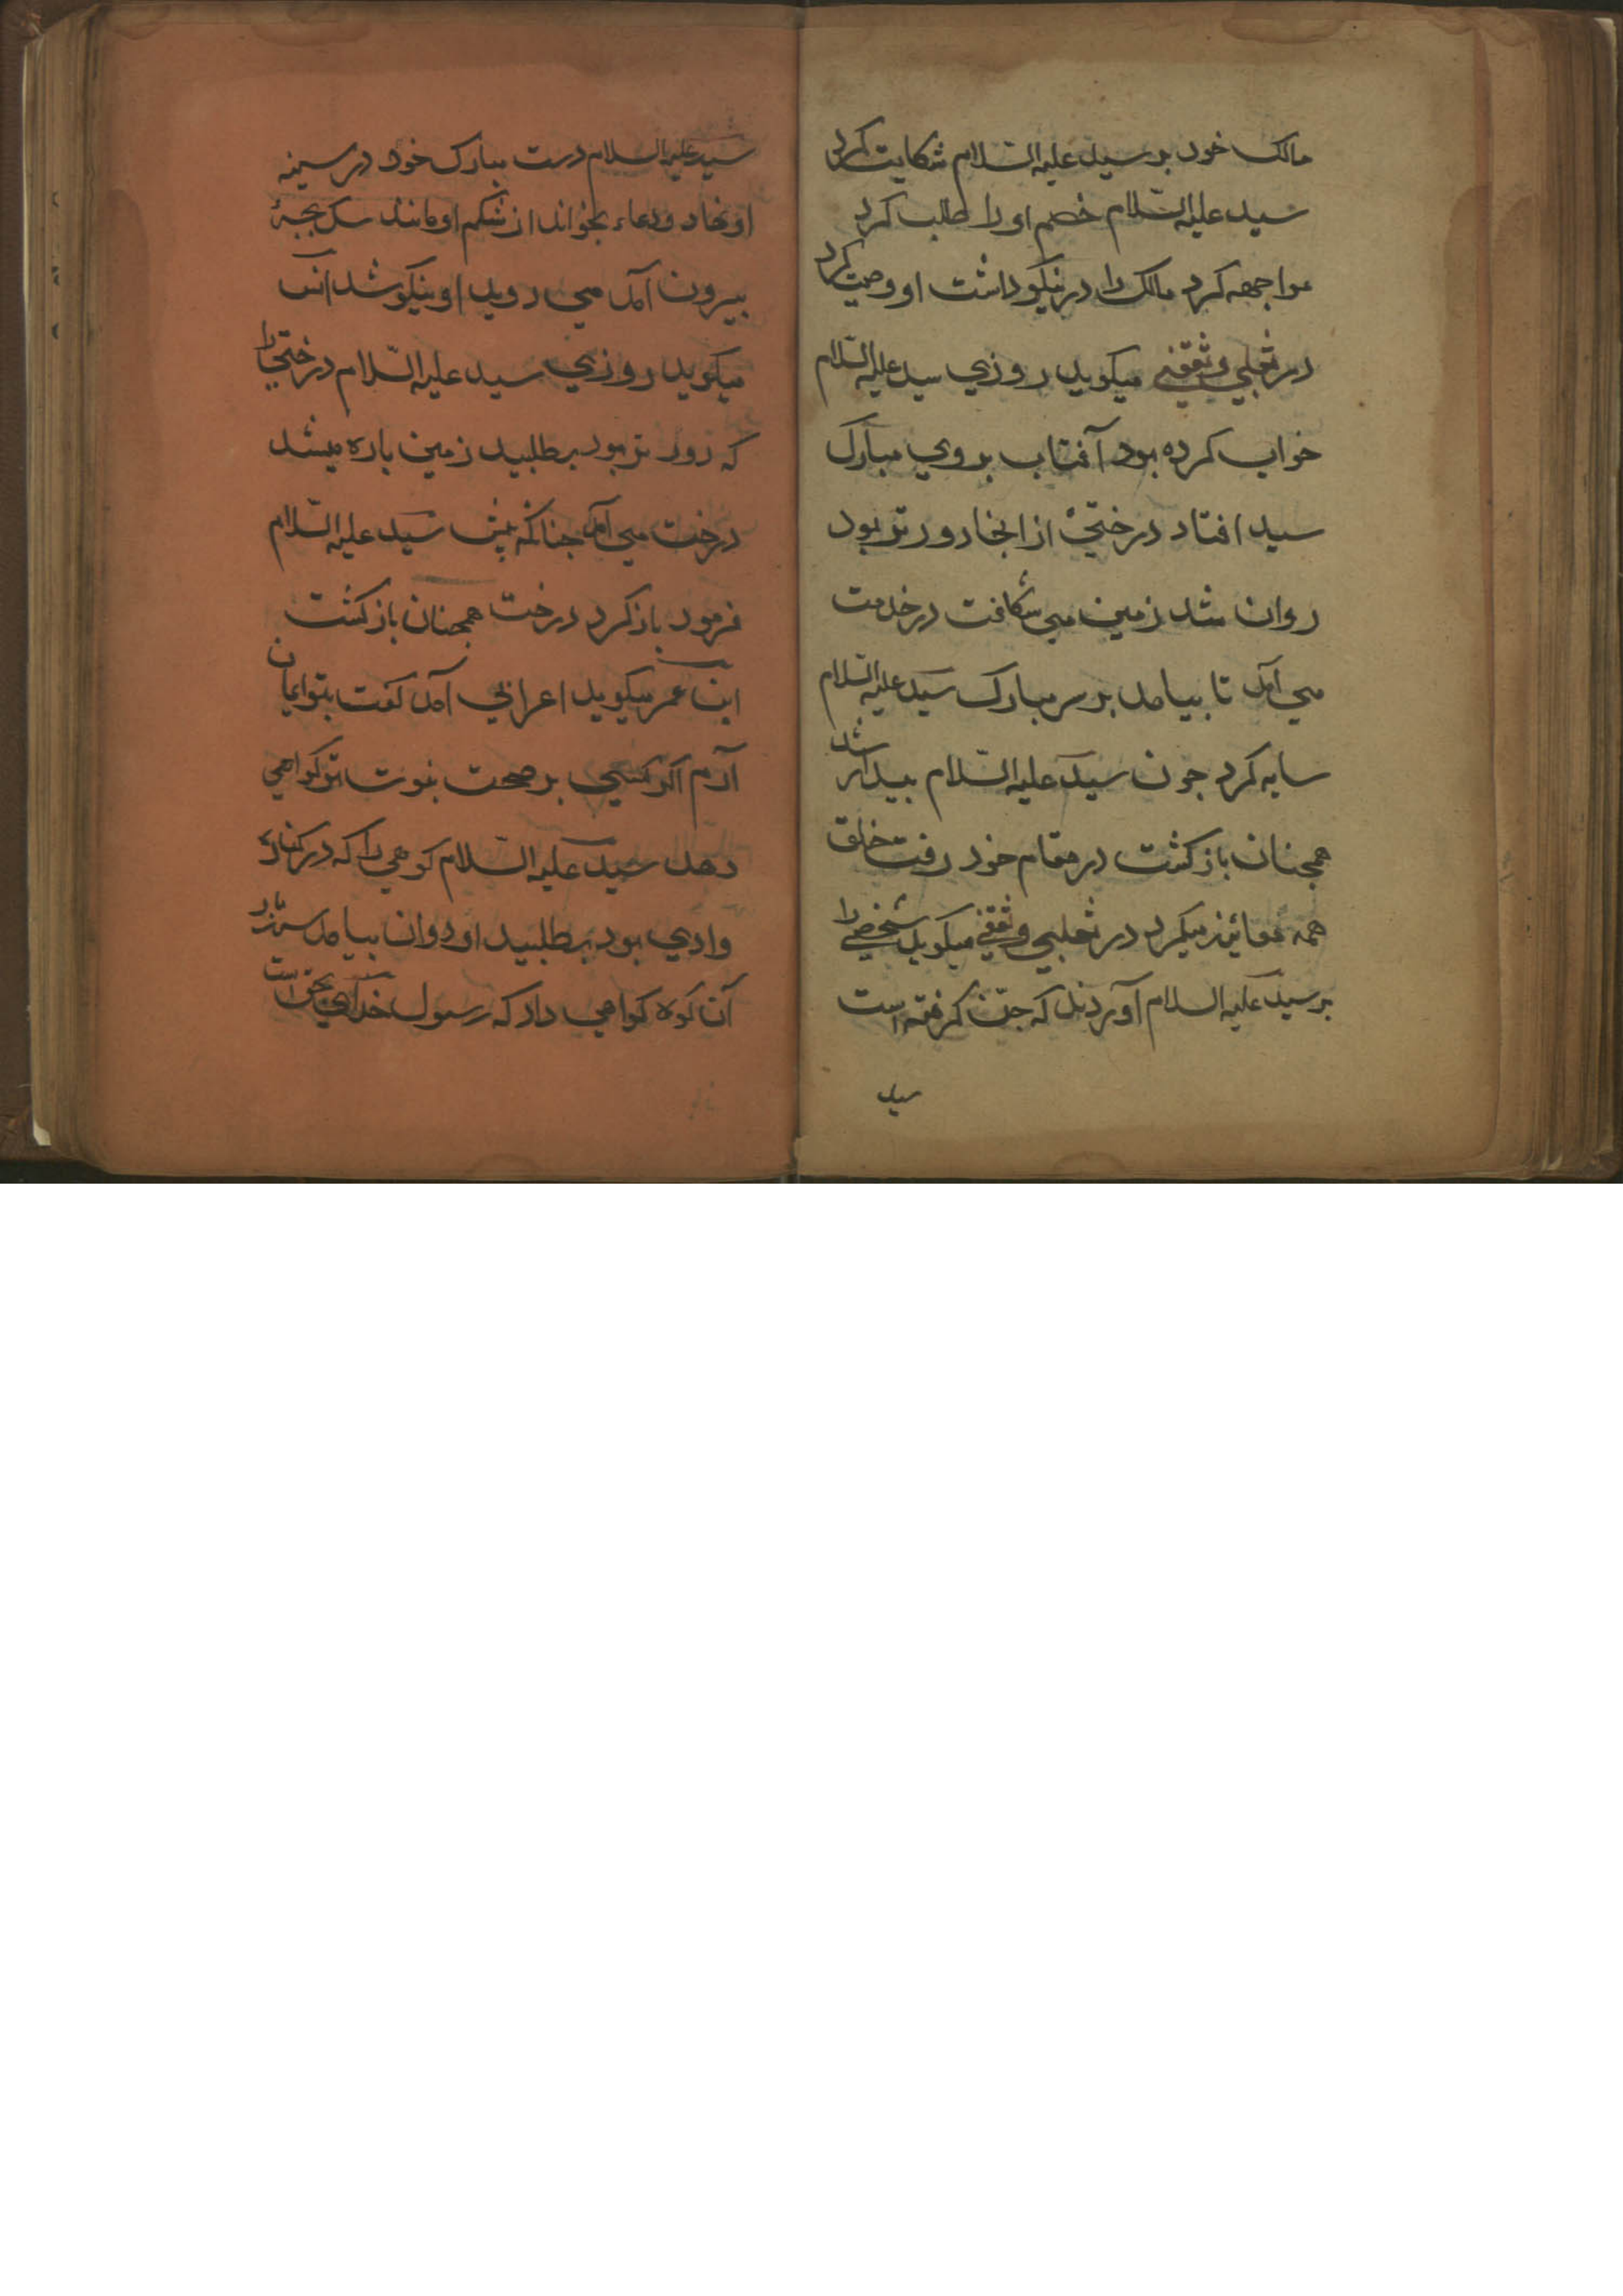 مالک خود بر سید علیه السّلام شکایت کرد
سید علیه السّلام خصم او را طلب کرد
مواجهه کرد مالک را در نیکو داشت او وصیت کرد
در ثعلبی و ثقفی میکوید روزی سید علیه السّلام
خواب کرده بود آفتاب بروی مبارک
سید افتاد درختی از انجا دورتر بود
روان شد زمین می شکافت در خدمت
می آمد تا بیامد بر سر مبارک سید علیه السّلام
سایه کرد جون سید علیه السّلام بیدار شد
همجنان باز کشت در مقام خود رفت خلق
همه معائنه میکرد در ثعلبی و ثقفی میکوید شخصی را
بر سید علیه السلام آوردند که جنّ کرفته است
سید
سید علیه السلام دست مبارک خود در سینه
او نهاد و دعاء بخواند از شکم او مانند سک بجۀ
بیرون آمد می دوید او نیکو شد انس
میکوید روزی سید علیه السّلام درختی را
که دور تر بود بطلبید زمین باره میشد
درخت می آمد جنانکه بیش سید علیه السّلام
فرمود باز کرد درخت همجنان باز کشت
ابن عمر میکوید اعرابی آمد کفت بتو ایمان
آرم اکر کسی بر صحت نبوت تو کواهی
دهد سید علیه السّلام کوهی را که در کنارۀ
وادی بود بطلبید او دوان بیامد سه بار
آن کوه کواهی داد که رسول خدای بحق است